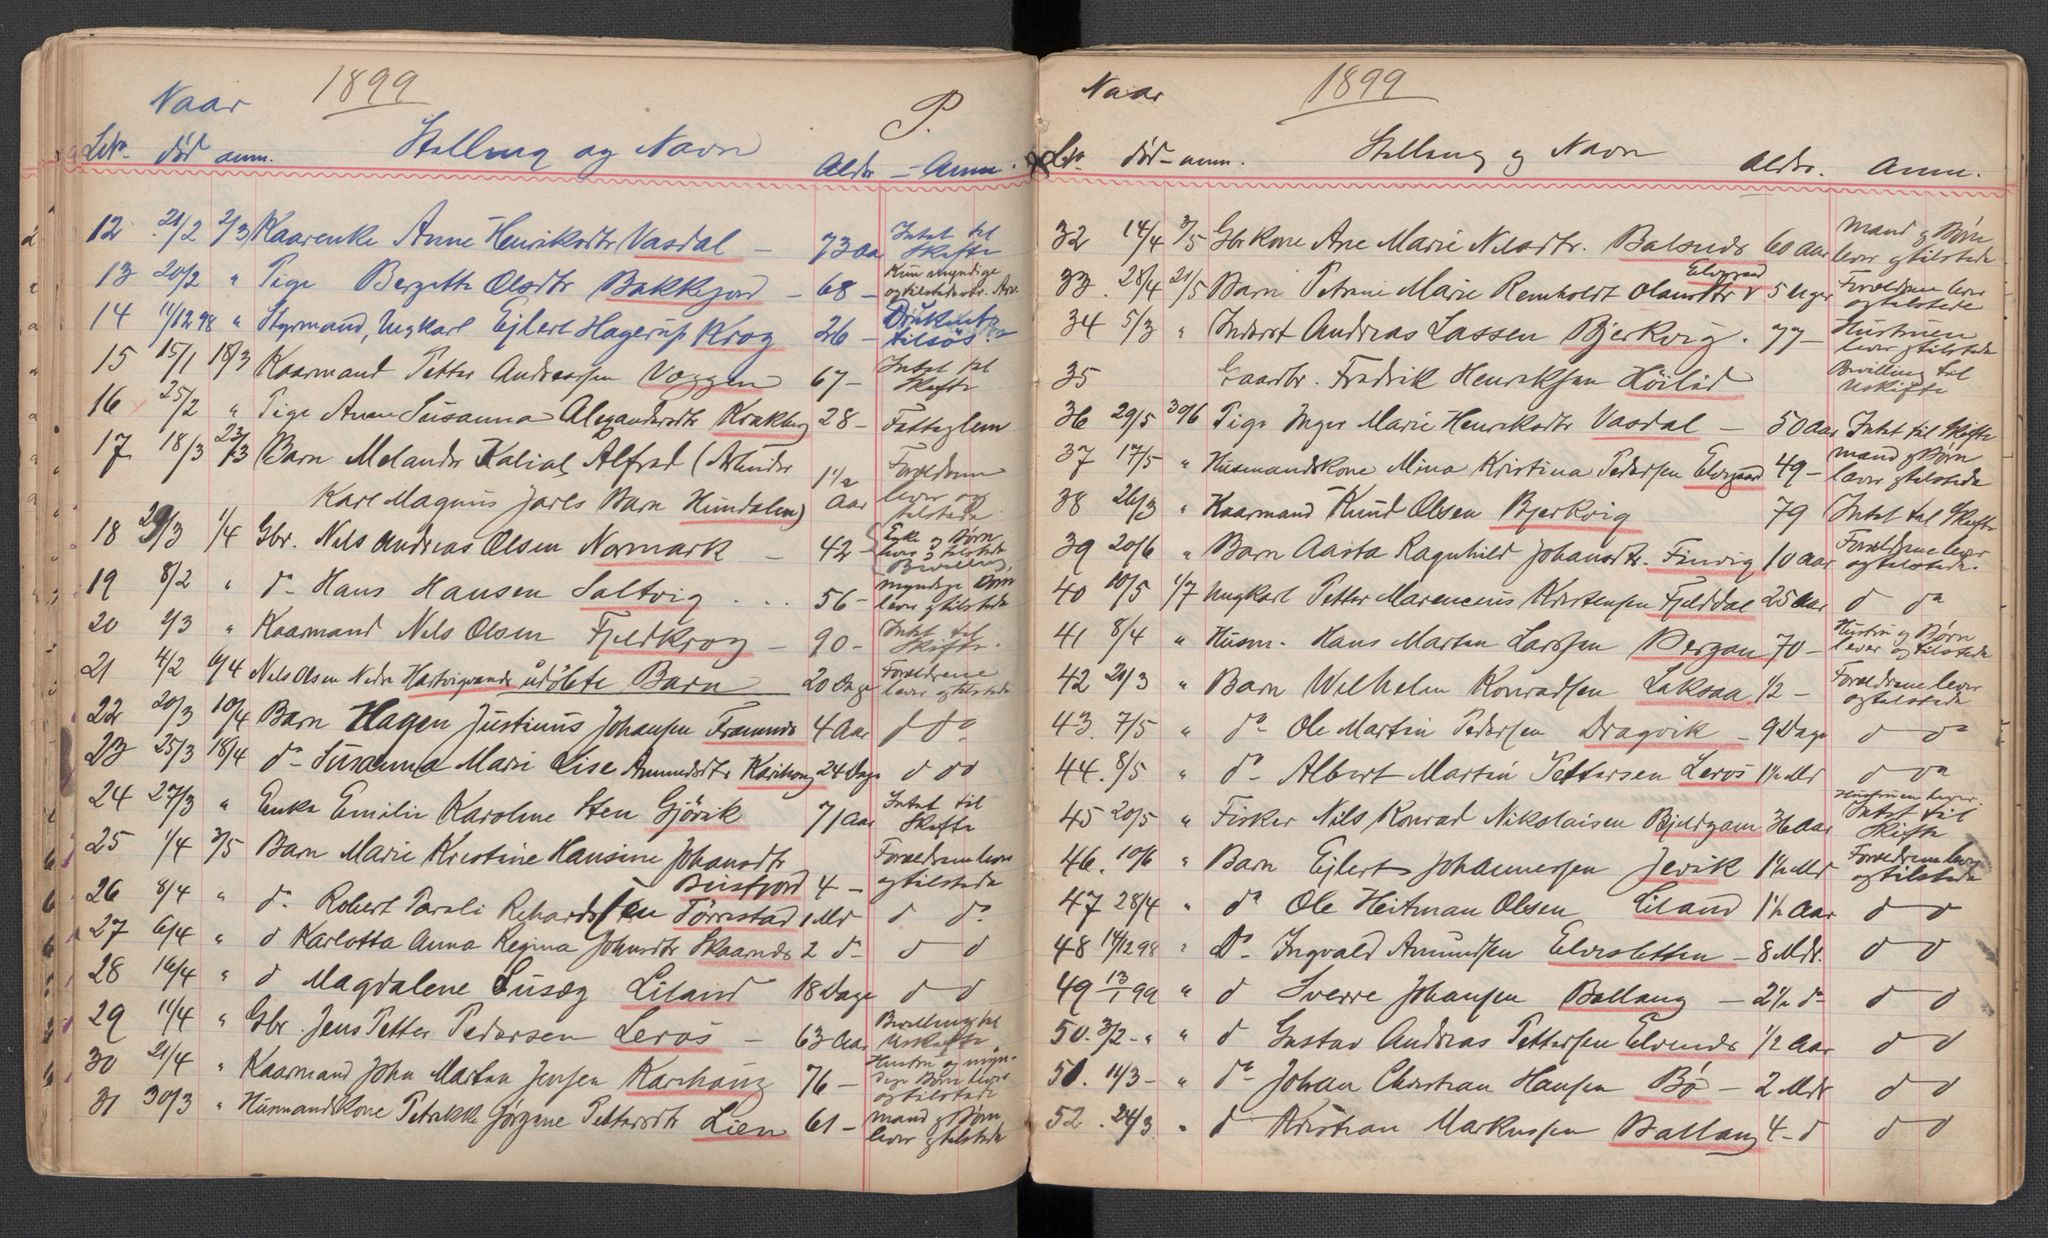 Naar 1899 P.
LNo død anm. Stilling og Navn Alder – Anm.
12 21/2 2/3 Kaarenke Anne Henriksdtr Vasdal – 73 Aar Intet til Skifte
13 20/2 " Pige Bergette Olsdtr Bakkejord – 68 – Kun myndige og tilstedevær. Arv.
14 11/12 98 " Styrmand, Ungkarl Ejlert Hagerup Krog 26 – Druknet tilsøs
15 15/1 18/3 Kaarmand Petter Andreassen Væggen 67 – Intet til Skifte
16 25/2 " Pige Anne Susanna Alexandersdtr Krakberg 28 – Fattiglem
17 18/3 23/3 Barn Melander Kalial Alfred (Arbeider 1 1/2 Aar Forældrene
Karl Magnus Jarls Barn Hundalen) lever og tilstede
18 29/3 1/4 Gbr. Nils Andreas Olsen Normark – 42 – Enke og Børn lever og tilstede (Bevilling)
19 8/2 " do Hans Hansen Saltvig . . . 56 – myndige Børn lever og tilstede
20 2/3 " Kaarmand Nils Olsen Fjeldkrog – 90 – Intet til Skifte.
21 4/2 6/4 Nils Olsen Nedre Hartvigvands udöbte Barn 20 Dage Forældrene lever og tilstede
22 20/3 10/4 Barn Hagen Justinus Johansen Framnes 4 Aar d do
23 25/3 18/4 do Susanna Marie Lise Amundsdtr Kårhoug 24 Dage d do
24 27/3 " Enke Emilie Karoline Sten Gjövik 71 Aar Intet til Skifte
25 1/4 3/5 Barn Marie Kristine Hansine Johansdtr Forældrene lever
Beisfjord 4 – og tilstede
26 8/4 " do Robert Pareli Rikardssen Tørrestad 1 Md d do
27 6/4 " d Karlotta Anna Regina Johansdtr Skaanes 2 do d d
28 16/4 " d Magdalene Susæg Liland 18 Dage d d
29 11/4 " Gbr. Jens Petter Pedersen Lerös – 63 Aar Bevilling til Uskifte
30 21/4 " Kaarmand John Martin Jensen Karhaug 76 – Hustru og myndige Børn lever og tilstede
31 30/3 " Husmandskone Petrikke Jørgine Pettersdtr Lien 61 – mand og Børn lever og tilstede
Naar 1899
LNo død – anm. Stilling og Navn Alder. Anm.
32 14/4 3/5 Gbrkone Ane Marie Nilsdtr. Balsnes 60 Aar mand og Børn lever og tilstede
33 28/4 21/5 Barn Petrine Marie Remholdt Olausdtr Elvegaard 5 Uger Forældrene lever og tilstede
34 5/3 " Inderst Andreas Lassen Bjerkvig . 77 – Hustruen lever og tilstede
35 Gaardbr. Fredrik Henriksen Höilid Bevilling til Uskifte
36 29/5 30/6 Pige Inger Marie Henriksdtr Vasdal – 50 Aar Intet til Skifte
37 17/5 " Husmandskone Mina Kristina Pedersen Elvegaard 49 – mand og Børn lever og tilstede
38 26/3 " Kaarmand Knud Olsen Bjerkvig 79 Intet til Skifte
39 20/6 " Barn Aasta Ragnhild Johansdtr. Finvig 10 Aar Forældrene lever og tilstede.
40 10/5 1/7 Ungkarl Petter Marencius Kristensen Fjelddal 25 Aar d do
41 8/4 " Husm. Hans Martin Larssen Bergan 70 – Hustru og Børn lever og tilstede
42 20/3 " Barn Wilhelm Konradsen Laksaa. 1/2 – Forældrene lever og tilstede
43. 7/5 " do Ole Martin Pedersen Dragvik – 9 Dage d do
44. 8/5 " do Albert Martin Pettersen Lerös 1 1/2 Md d do
45 20/5 " Fisker Nils Konrad Nikolaisen Bjerkgam 36 Aar Hustruen lever. Intet til Skifte
46. 10/6 " Barn Ejlert Johannessen Jevik 1 1/2 Md Forældrene lever og tilstede
47 28/4 " do Ole Heitman Olsen Liland 1 1/2 Aar d d
48 14/12 98 " Do Ingvald Amundsen Elvesletten – 8 Mdr. d d
49 13/1 99 " d Sverre Johansen Ballang – 2 1/2 do d d
50. 3/2 – " " d Gustav Andreas Pettersen Elvenes 1/2 Aar d d
51. 11/3 – " do Johan Christian Hansen Bø – 2 Mdr d d
52 . 24/3 " d Kristian Markussen Ballang 4 – d d d